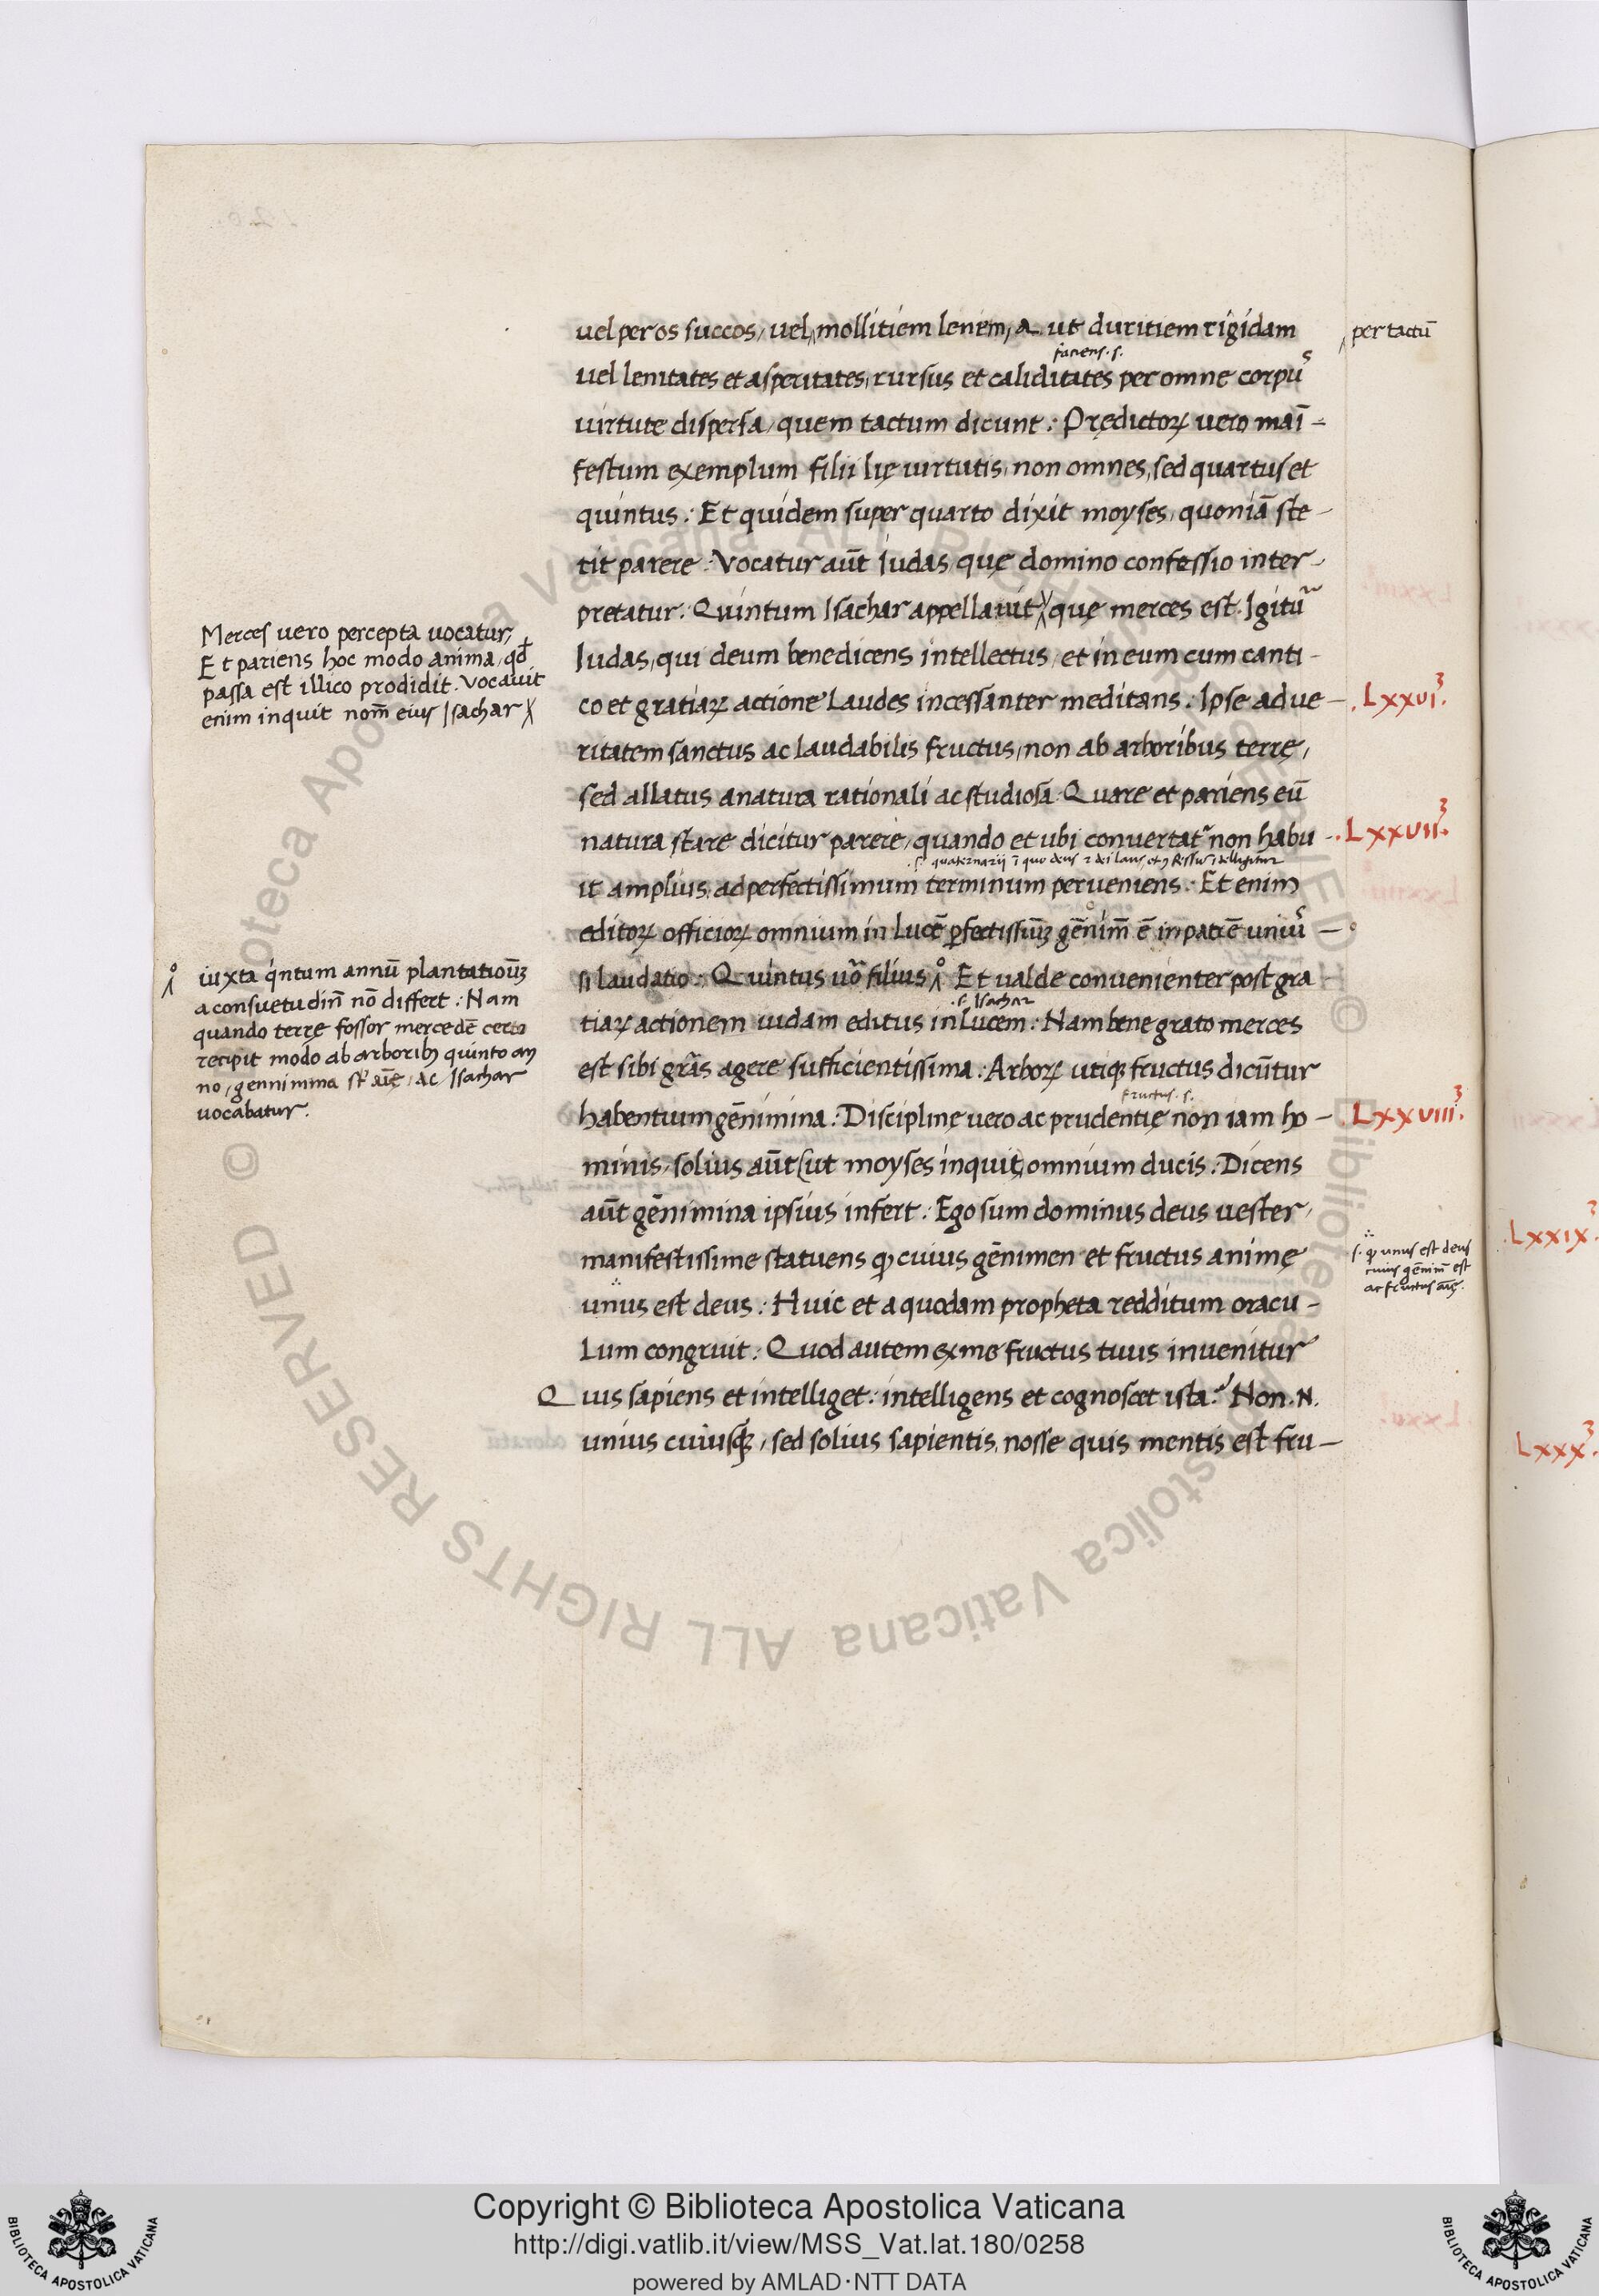 uel per os succos, uel mollitiem lenem, a ut duritiem rigidam
per tactū
faciens .s.
uel lenitates et asperitates, rursus et caliditates per omne corpus
uirtute dispersa, quem tactum dicunt: Prędictoꝝ uero mai-
festum exemplum filii lię uirtutis, non omnes, sed quartus et
quintus: Et quidem super quarto dixit moyses, quoniā ste-
tit parere: Vocatur aūt Iudas, quę domino confessio inter-
pretatur: Quintum Isachar appellauit, quę merces est. Igitur
Iudas, qui deum benedicens intellectus, et in eum cum canti-
co et gratiaꝝ actione laudes incessanter meditans: Ipse ad ue-
.LXXVI³.
ritatem sanctus ac laudabilis fructus, non ab arboribus terrę,
sed allatus a natura rationali ac studiosa. Quare et pariens eū
natura stare dicitur parere, quando et ubi conuertat̃ non habu-
.LXXVII³.
it amplius, ad perfectissimum terminum perueniens: Et enim
editoꝝ officioꝝ omnium in lucē ꝑfectissimū gēnim̄ ē in patrē uniuer-
si laudatio: Quintus uō filius Et ualde conuenienter post gra
.s. Isachar
tiaꝝ actionem iudam editus in lucem: Nam bene grato merces
est sibi grās agere sufficientissima: Arboꝝ utiqꝫ fructus dicūtur
fructus .s.
habentium gēnimina: Disciplinę uero ac prudentię non iam ho-
.LXXVIII³.
minis, solius aūt (ut moyses inquit) omnium ducis: Dicens
aūt gēnimina ipsius infert: Ego sum dominus deus uester,
manifestissime statuens ꝙ cuius gēnimen et fructus animę
unus est deus: Huic et a quodam propheta redditum oracu-
lum congruit: Quod autem ex me fructus tuus inuenitur
Quis sapiens et intelliget: intelligens et cognoscet ista? Non .N.
unius cuiusqꝫ, sed solius sapientis, nosse quis mentis est fru-
Merces uero percepta uocatur,
Et pariens hoc modo anima, qđ
passa est illico prodidit. Vocauit
enim inquit nom̄ eius Isachar
iuxta q̇ntum annū plantationū
a consuetudin̄ nō differt: Nam
quando terrę fossor mercedē certo
recipit modo ab arboribꝫ quinto an
no, gennimina st̄ aīę, ac Isachar
uocabatur.
s. ꝙ unus est deus
cuius gēnim̄ est
ac fructus aīę.
.LXXIX³.
LXXX³.
© Biblioteca Apostolica Vaticana ALL RIGHTS RESERVED
Copyright © Biblioteca Apostolica Vaticana
http://digi.vatlib.it/view/MSS_Vat.lat.180/0258
powered by AMLAD·NTT DATA
BIBLIOTECA APOSTOLICA VATICANA
BIBLIOTECA APOSTOLICA VATICANA